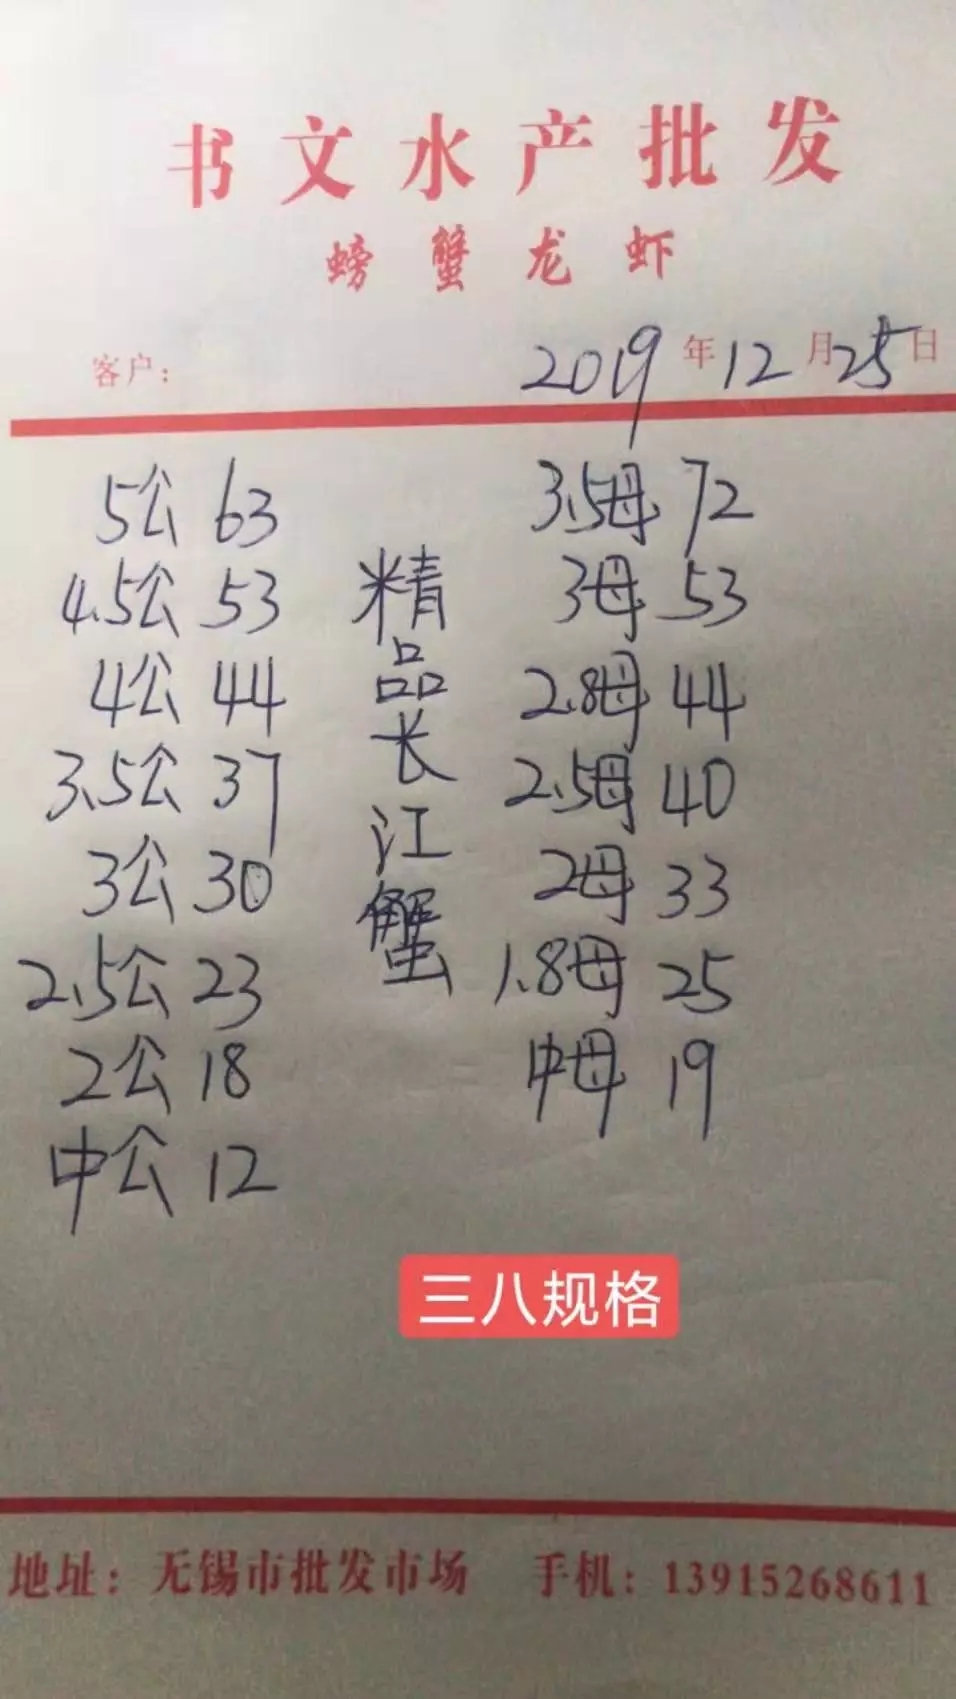 书文水产批发
螃蟹龙虾
客户： 2019年12月25日
5公 63 3.5母 72
4.5公 53 3母 53
4公 44 2.8母 44
3.5公 37 2.5母 40
3公 30 2母 33
2.5公 23 1.8母 25
2公 18 中母 19
中公 12
精品长江蟹
三八规格
地址：无锡市批发市场 手机：13915268611